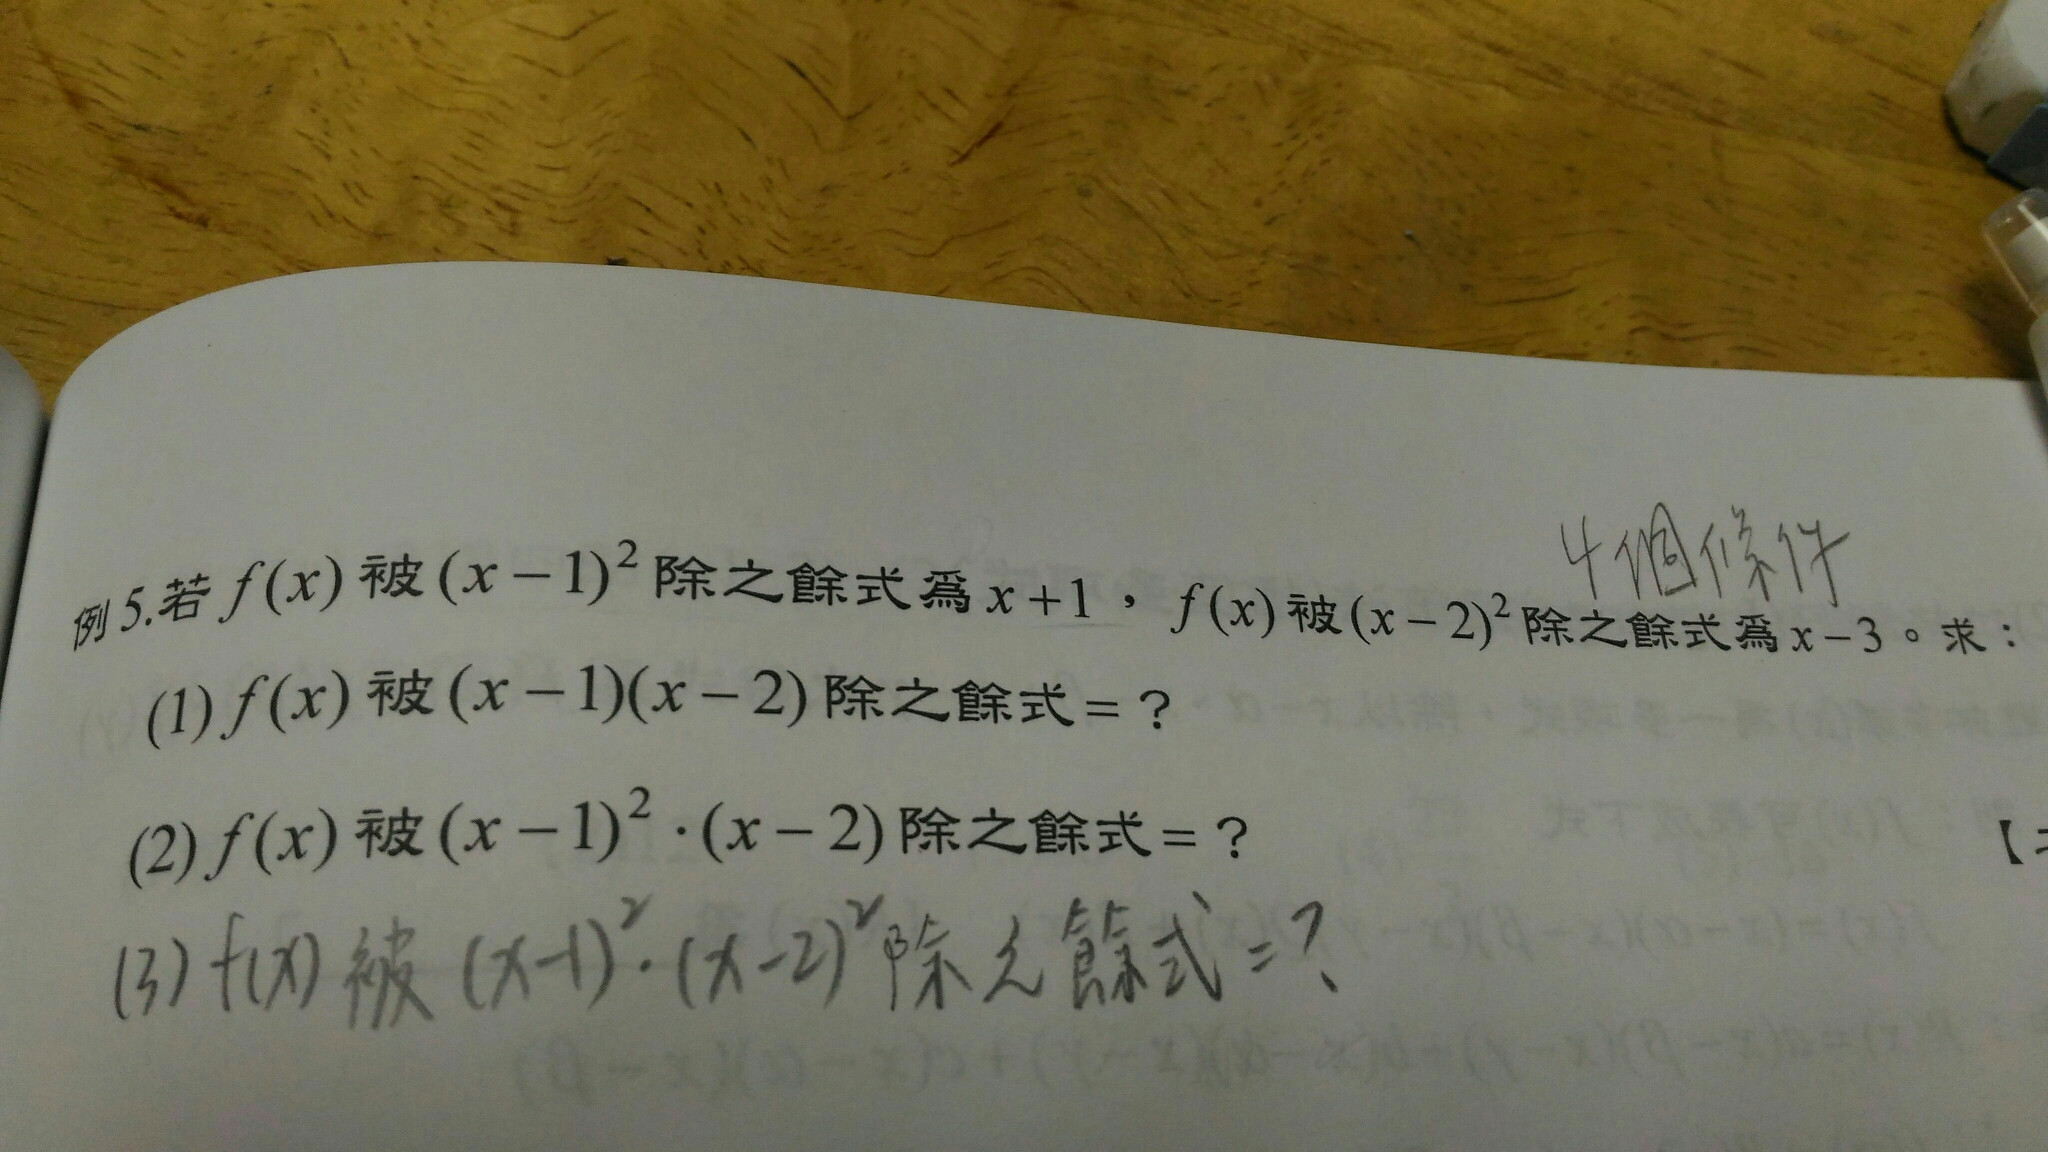 4個條件
例5.若 f(x) 被 (x-1)² 除之餘式為 x+1，f(x) 被 (x-2)² 除之餘式為 x-3。求：
(1) f(x) 被 (x-1)(x-2) 除之餘式=？
(2) f(x) 被 (x-1)²·(x-2) 除之餘式=？
【
(3) f(x) 被 (x-1)²·(x-2)² 除之餘式=？